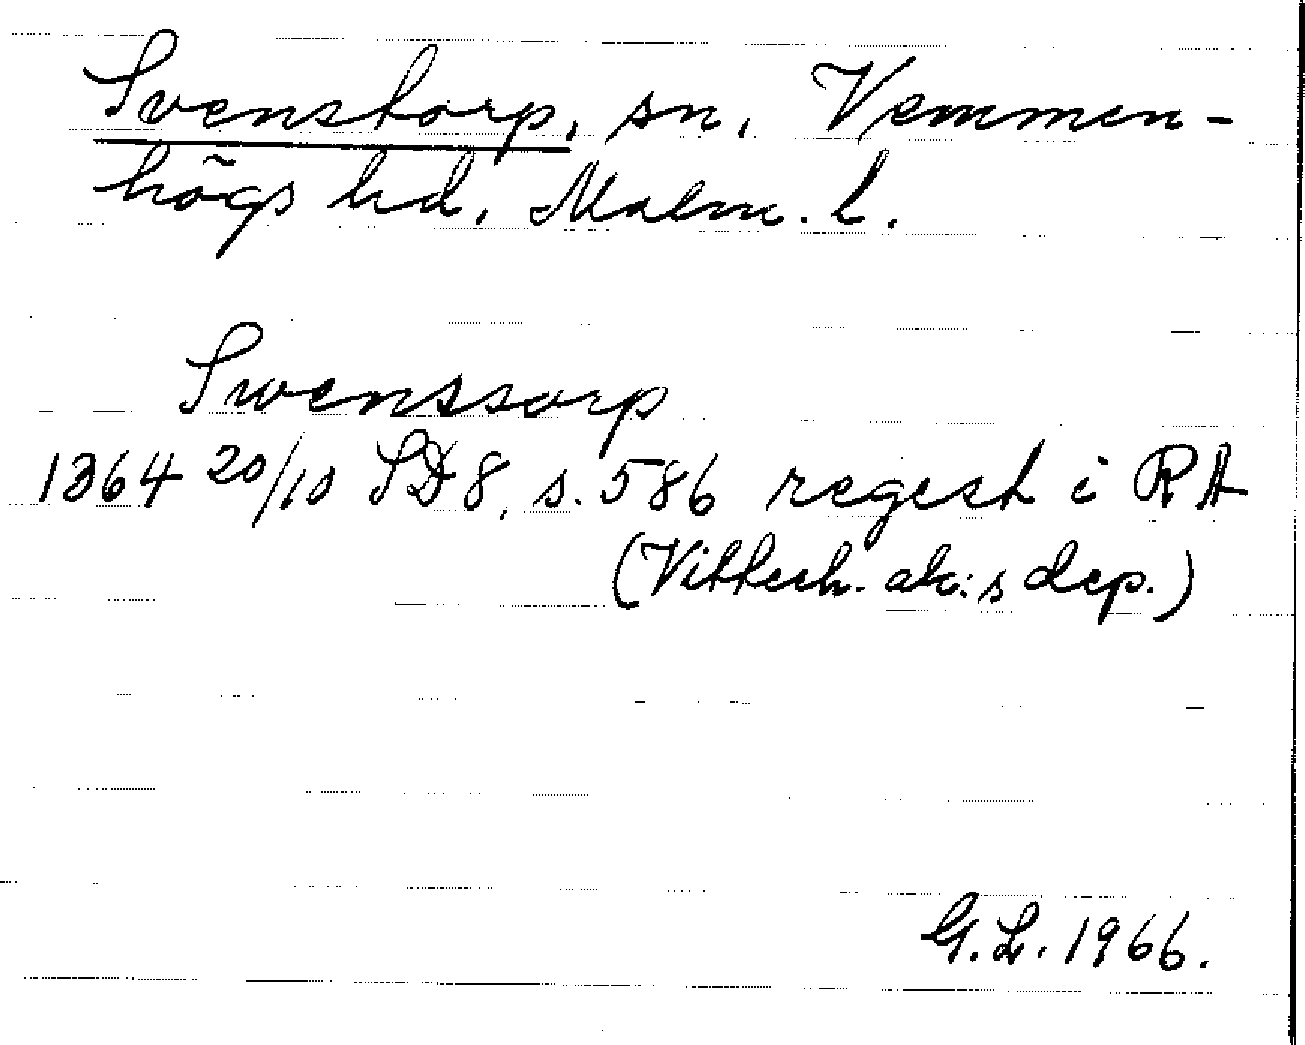 Svenstorp, sn, Vemmen-
högs hd, Malm. l.
Swenssorp
1364 20/10 SD8, s. 586 regest i RA
(Vitterh. ak:s dep.)
G.L. 1966.